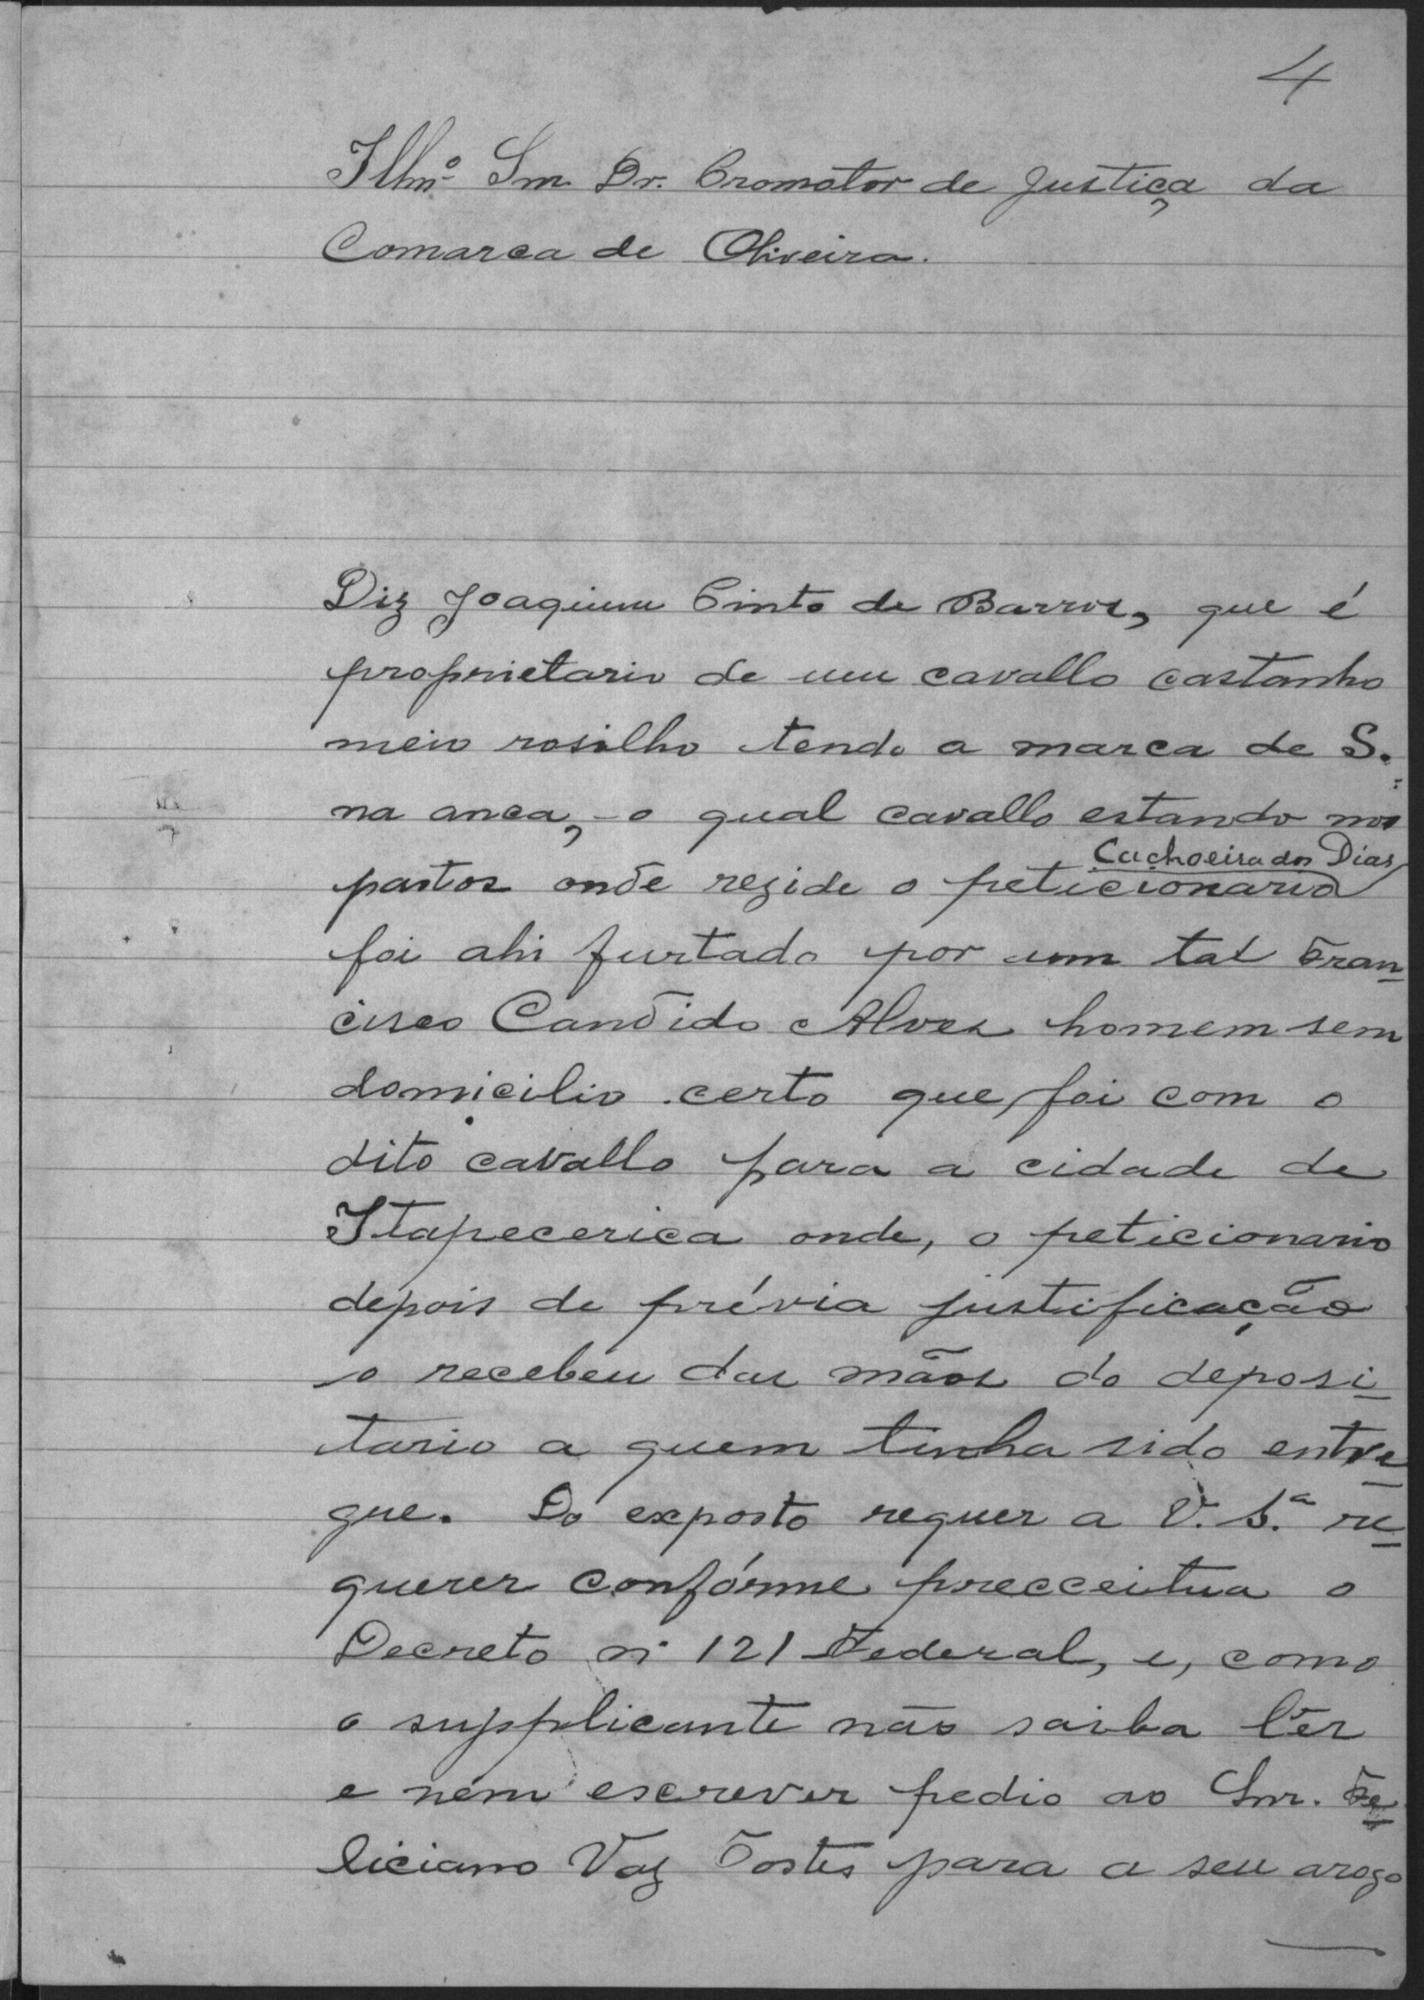 4
Illmº Snr. Dr. Promotor de Justiça da
Comarca de Oliveira.
Diz Joaquim Pinto de Barros, que é
proprietario de um cavallo castanho
meio rosilho tendo a marca de S.
na anca, o qual cavallo estando nos
Cachoeira dos Dias
pastos onde rezide o peticionario
foi ahi furtado por um tal Fran
cisco Candido Alves homem sem
domicilio certo que foi com o
dito cavallo para a cidade de
Itapecerica onde, o peticionario
depois de prévia justificação
o recebeu das mãos do deposi
tario a quem tinha sido entre
gue. Do exposto requer a V. S.ª re
querer confórme precceitua o
Decreto nº 121 Federal, e, como
o supplicante não saiba lêr
e nem escrever pedio ao Snr. Fe
liciano Vaz Tostes para a seu arogo